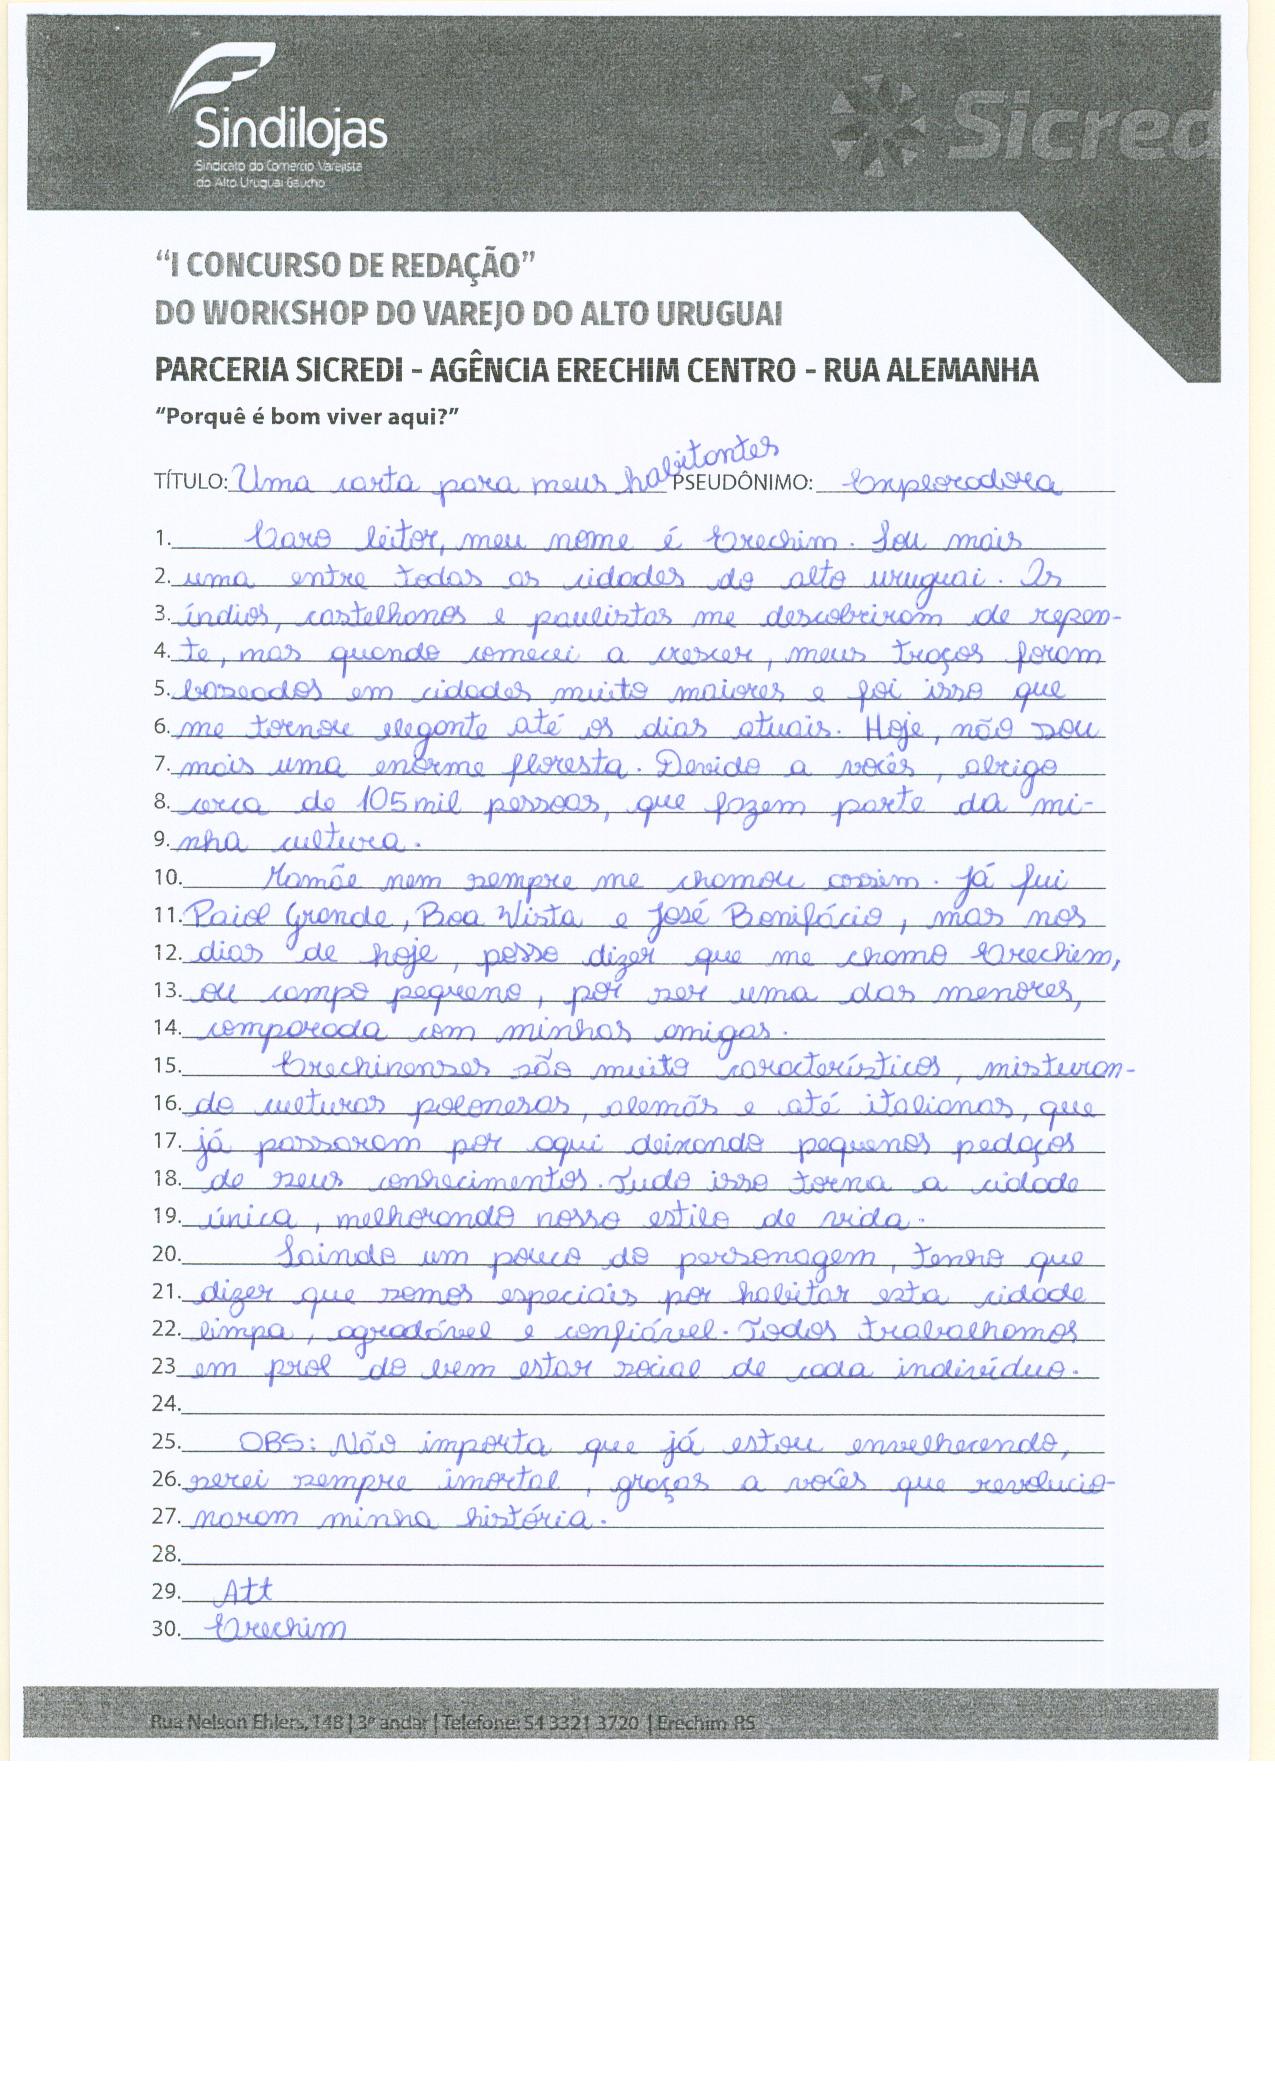 Sindilojas
Sindicato do Comercio Varejista
do Alto Uruguai Gaucho
Sicred
“I CONCURSO DE REDAÇÃO”
DO WORKSHOP DO VAREJO DO ALTO URUGUAI
PARCERIA SICREDI - AGÊNCIA ERECHIM CENTRO - RUA ALEMANHA
“Porquê é bom viver aqui?”
TÍTULO: Uma carta para meus habitantes PSEUDÔNIMO: Exploradora
1. Caro leitor, meu nome é Erechim. Sou mais
2. uma entre todas as cidades do alto uruguai. Os
3. índios, castelhanos e paulistas me descobriram de repen-
4. te, mas quando comecei a crescer, meus traços foram
5. baseados em cidades muito maiores e foi isso que
6. me tornou elegante até os dias atuais. Hoje, não sou
7. mais uma enorme floresta. Devido a vocês, abrigo
8. cerca de 105 mil pessoas, que fazem parte da mi-
9. nha cultura.
10. Mamãe nem sempre me chamou assim. Já fui
11. Paiol Grande, Boa Vista e José Bonifácio, mas nos
12. dias de hoje, posso dizer que me chamo Erechim,
13. ou campo pequeno, por ser uma das menores,
14. comparada com minhas amigas.
15. Erechinenses são muito característicos, misturan-
16. do culturas polonesas, alemãs e até italianas, que
17. já passaram por aqui deixando pequenos pedaços
18. de seus conhecimentos. Tudo isso torna a cidade
19. única, melhorando nosso estilo de vida.
20. Saindo um pouco do personagem, tenho que
21. dizer que somos especiais por habitar esta cidade
22. limpa, agradável e confiável. Todos trabalhamos
23 em prol do bem estar social de cada indivíduo.
24.
25. OBS: Não importa que já estou envelhecendo,
26. serei sempre imortal, graças a vocês que revolucio-
27. naram minha história.
28.
29. Att
30. Erechim
Rua Nelson Ehlers, 148 | 3º andar | Telefone: 54 3321 3720 | Erechim RS